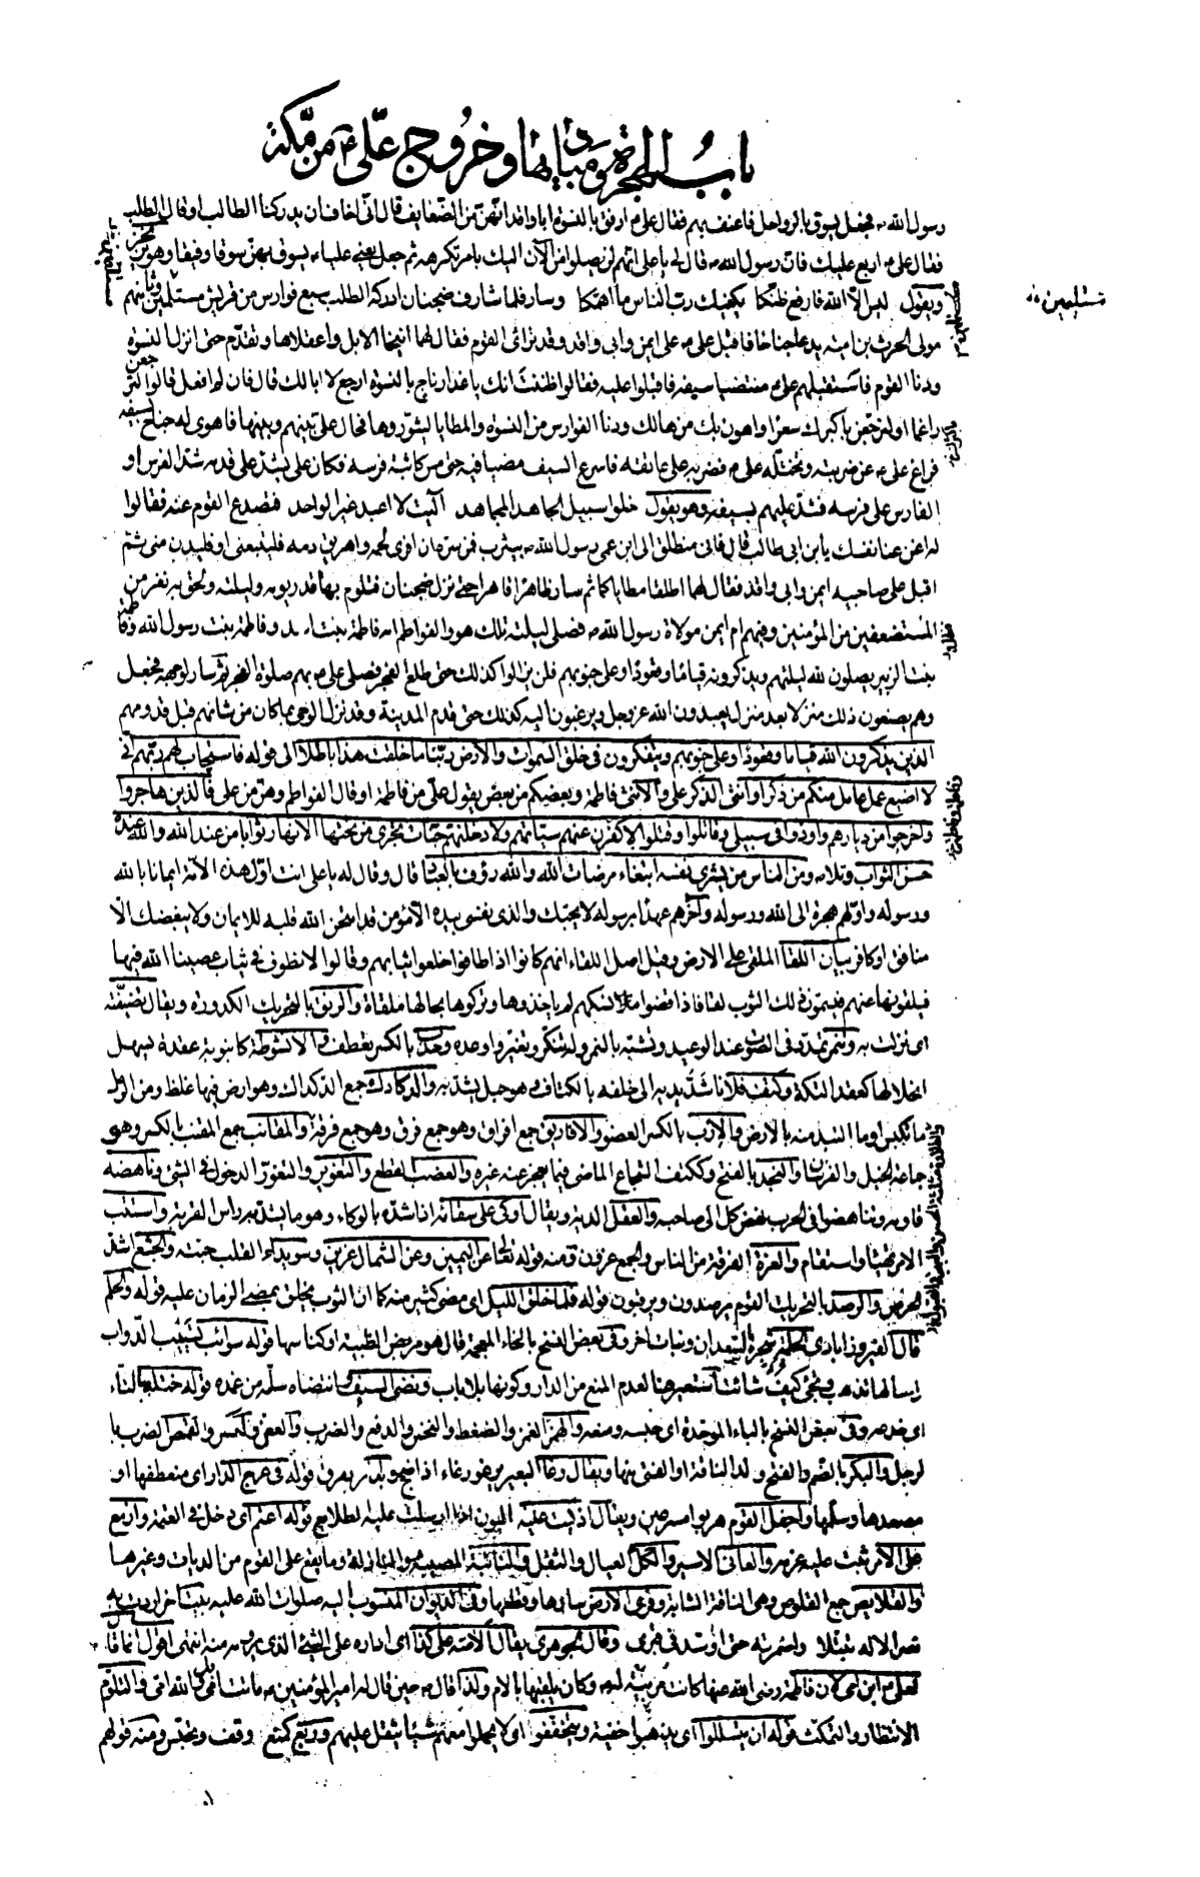 باب الهجرة ومباديها وخروج علىّ ع من مكّة
رسول الله ص فجعل يسوق بالرواحل فاعنف بهم فقال على ع ارفق بالنسوة ابا واقد انهن من الضعايف قال انى اخاف ان يدركنا الطالب او قال الطلب
فقال على ع اربع عليك فان رسول الله ص قال لى يا على انهم لن يصلوا من الآن اليك بامر تكرهه ثم جعل يعنى عليا ع يسوق بهن سوقا رفيقا وهو يرتجز
ويقول ليس الا الله فارفع ظنكا يكفيك رب الناس ما اهمكا وسار فلما شارف ضجنان ادركه الطلب سبع فوارس من قريش مستلئمين وثامنهم
مستلئمين
مولى الحرث بن امية يدعى جناحا فاقبل على ع على ايمن وابى واقد وقد تراءى القوم فقال لهما انيخا الابل واعقلاها وتقدم حتى انزل النسوة
ودنا القوم فاستقبلهم على ع منتضيا سيفه فاقبلوا عليه فقالوا ظننت انك يا غدار ناج بالنسوة ارجع لا ابا لك قال فان لم افعل قالوا لترجعن
راغما او لنرجعن باكبرك سعرا واهون بك من هالك ودنا الفوارس من النسوة والمطايا ليثوروها فحال على ع بينهم وبينها فاهوى له جناح بسيفه
فراغ على ع عن ضربته وتختله على ع فضربه على عاتقه فاسرع السيف مضيا فيه حتى مس كاثبة فرسه فكان على ع يشد على قدمه شد الفرس او
الفارس على فرسه فشد عليهم بسيفه وهو يقول خلوا سبيل الجاهد المجاهد آليت لا اعبد غير الواحد فتصدع القوم عنه فقالوا
له اغن عنا نفسك يا بن ابى طالب قال فانى منطلق الى ابن عمى رسول الله ص بيثرب فمن سره ان افرى لحمه واهريق دمه فليتبعنى او فليدن منى ثم
اقبل على صاحبيه ايمن وابى واقد فقال لهما اطلقا مطاياكما ثم سار ظاهرا قاهرا حتى نزل ضجنان فتلوم بها قدر يومه وليلته ولحق به نفر من
المستضعفين من المؤمنين وفيهم ام ايمن مولاة رسول الله ص فصلى ليلته تلك هو والفواطم امه فاطمة بنت اسد وفاطمة بنت رسول الله وفاطمة
بنت الزبير يصلون لله ليلتهم ويذكرونه قياما وقعودا وعلى جنوبهم فلن يزالوا كذلك حتى طلع الفجر فصلى على ع بهم صلوة الفجر ثم سار لوجهه فجعل
وهم يصنعون ذلك منزلا بعد منزل يعبدون الله عز وجل ويرغبون اليه كذلك حتى قدم المدينة وقد نزل الوحى بما كان من شانهم قبل قدومهم
الذين يذكرون الله قياما وقعودا وعلى جنوبهم ويتفكرون فى خلق السموات والارض ربنا ما خلقت هذا باطلا الى قوله فاستجاب لهم ربهم انى
لا اضيع عمل عامل منكم من ذكر او انثى الذكر على والانثى فاطمة وبعضكم من بعض يقول على من فاطمة او قال الفواطم وهن من على فالذين هاجروا
واخرجوا من ديارهم واوذوا فى سبيلى وقاتلوا وقتلوا لاكفرن عنهم سيئاتهم ولادخلنهم جنات تجرى من تحتها الانهار ثوابا من عند الله والله عنده
حسن الثواب وتلا ص ومن الناس من يشرى نفسه ابتغاء مرضات الله والله رؤف بالعباد قال وقال له يا على انت اول هذه الامة ايمانا بالله
ورسوله واولهم هجرة الى الله ورسوله وآخرهم عهدا برسوله لا يحبك والذى نفسى بيده الا مؤمن قد امتحن الله قلبه للايمان ولا يبغضك الا
منافق او كافر بيان اللقا الملقى على الارض وقيل اصل اللقاء انهم كانوا اذا طافوا خلعوا ثيابهم وقالوا لا نطوف فى ثياب عصينا الله فيها
فيلقونها عنهم فيسمون ذلك الثوب لقا فاذا قضوا نسكهم لم ياخذوها وتركوها بحالها ملقاة والرنق بالتحريك الكدورة ويقال تضيفته
اى نزلت به وتنمر تمدد فى الصوت عند الوعيد وتشبه بالنمر وله تنكر وتغير واوعده وحدب بالكسر يعطف والانشوطة كانبوبة عقدة يسهل
انحلالها كعقد التكة وكتف فلانا شد يديه الى خلفه بالكتاف وهو حبل يشد به والدكادك جمع الدكداك وهو ارض فيها غلظ ومن الرمل
ما تكبس او ما التبد منه بالارض والارب بالكسر العضو والافاريق جمع افراق وهو جمع فرق وهو جمع فرقة والمقانب جمع المقنب بالكسر وهو
جماعة الخيل والفرسان والنجد بالفتح وككتف الشجاع الماضى فيما يعجز عنه غيره والعضب القطع والتغوير والتغور الدخول فى الشئ وناهضه
قاومه وتناهضوا فى الحرب نهض كل الى صاحبه والعقل الدية ويقال اوكى على سقائه اذا شده بالوكاء وهو ما يشد به راس القربة واستتب
الامر تهيأ واستقام والعزة الفرقة من الناس والجمع عزون ومنه قوله تعالى عن اليمين وعن الشمال عزين وسويداء القلب حبته والجشع اشد
الحرص والرصد بالتحريك القوم يرصدون ويرقبون قوله فلما خلق الليل اى مضى كثير منه كما ان الثوب يخلق بمضى الزمان عليه قوله والحلم
قال الفيروزابادى الحلمة شجرة السعدان ونبات آخر وفى بعض النسخ بالخاء المعجمة قال هو مربض الظبية او كناسها قوله سوائب تسييب الدواب
ارسالها تذهب وتجئ كيف شاءت استعير هنا لعدم المنع من الدار وكونها بلا باب ونضى السيف وانتضاه سله من غمده قوله ختله بالتاء
اى خدعه وفى بعض النسخ بالباء الموحدة اى حبسه ومنعه والهمز الغمز والضغط والنخس والدفع والضرب والعض والكسر والقمص الضرب بال
رجل والبكر بالضم والفتح ولد الناقة او الفتى منها ويقال رغا البعير يرغو رغاء اذا ضج قوله فى عرج الدار اى منعطفها او
مصعدها وسلمها واجفل القوم هربوا مسرعين ويقال اذكيت عليه العيون اذا ارسلت عليه الطلايع قوله اعتم اى دخل فى العتمة وازمع
على الامر ثبت عليه عزمه والعانى الاسير والكل العيال والثقل والنائبة المصيبة والنازلة وما يقع على القوم من الديات وغيرها
والقلايص جمع القلوص وهى الناقة الشابة وفرى الارض سارها وقطعها وفى الديوان المنسوب اليه صلوات الله عليه
نصر الاله تبتلا واضمرته حتى اوسد فى قبرى وقال الجوهرى
لعلى ع ابن امى لان فاطمة رضى الله عنها كانت مربية له ص وكان يلقبها بالام ولذا قال ص حين قال له امير المؤمنين ع ماتت امى بل والله امى والتلوم
الانتظار والتمكث قوله ان يتسللوا اى يذهبوا خفية ويتخففوا اى لا يحملوا معهم شيئا يثقل عليهم وربع كمنع وقف وتحبس ومنه قولهم